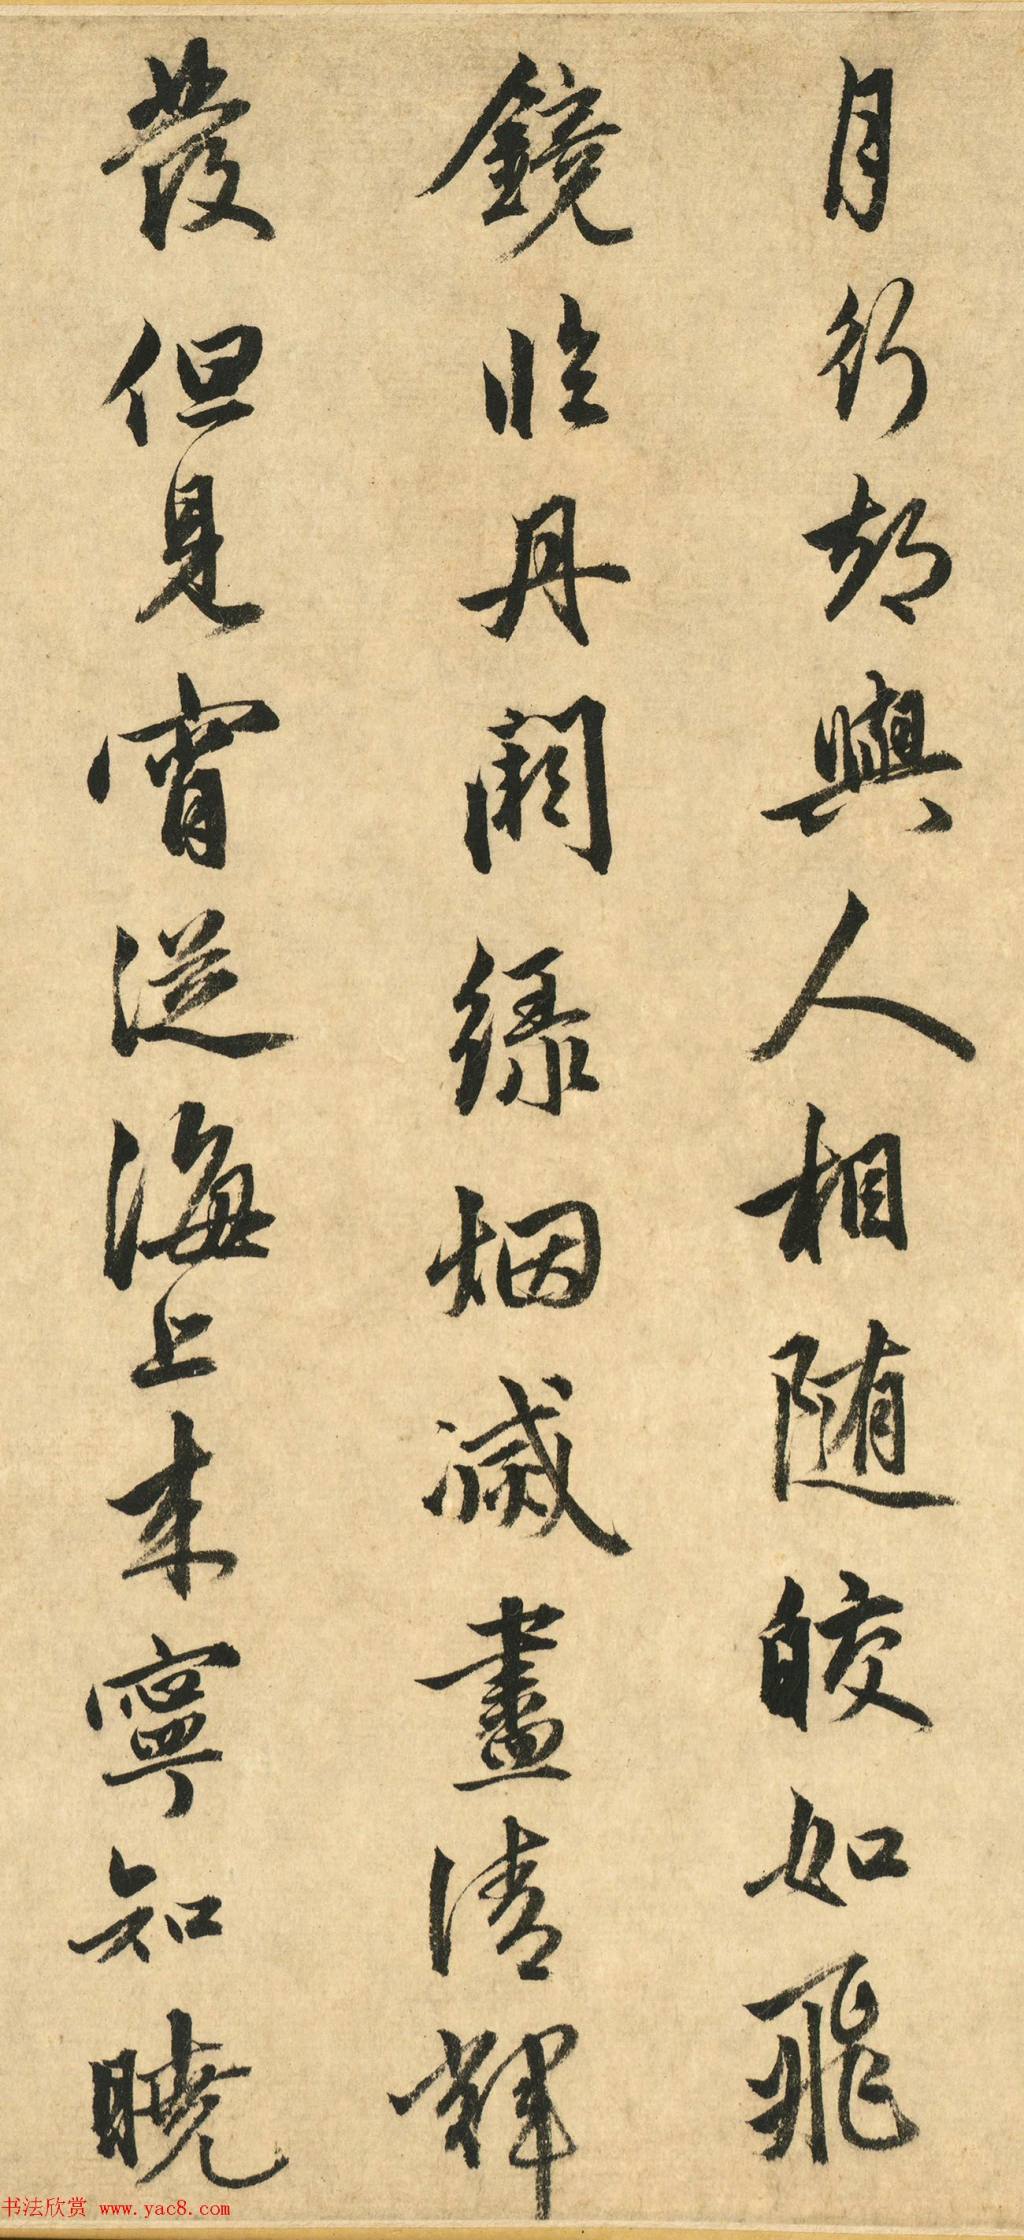 月行却與人相随皎如飛
鏡臨丹闕緑烟滅盡清輝
發但見宵從海上来寧知曉
书法欣赏 www.yac8.com